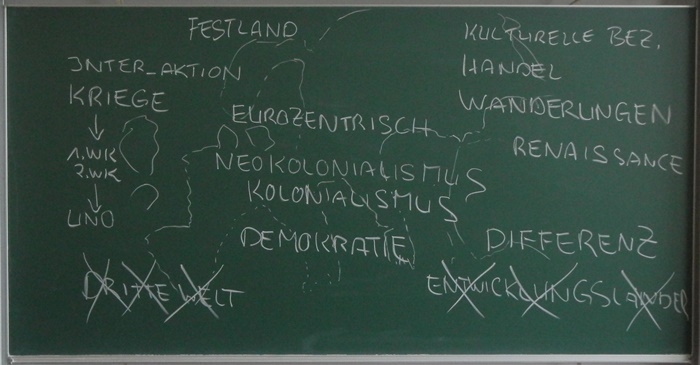 FESTLAND
KULTURELLE BEZ.
INTER-AKTION
HANDEL
KRIEGE
WANDERUNGEN
EUROZENTRISCH
RENAISSANCE
1.WK
2.WK
NEOKOLONIALISMUS
KOLONIALISMUS
UNO
DEMOKRATIE
DIFFERENZ
DRITTE WELT
ENTWICKLUNGSLÄNDER